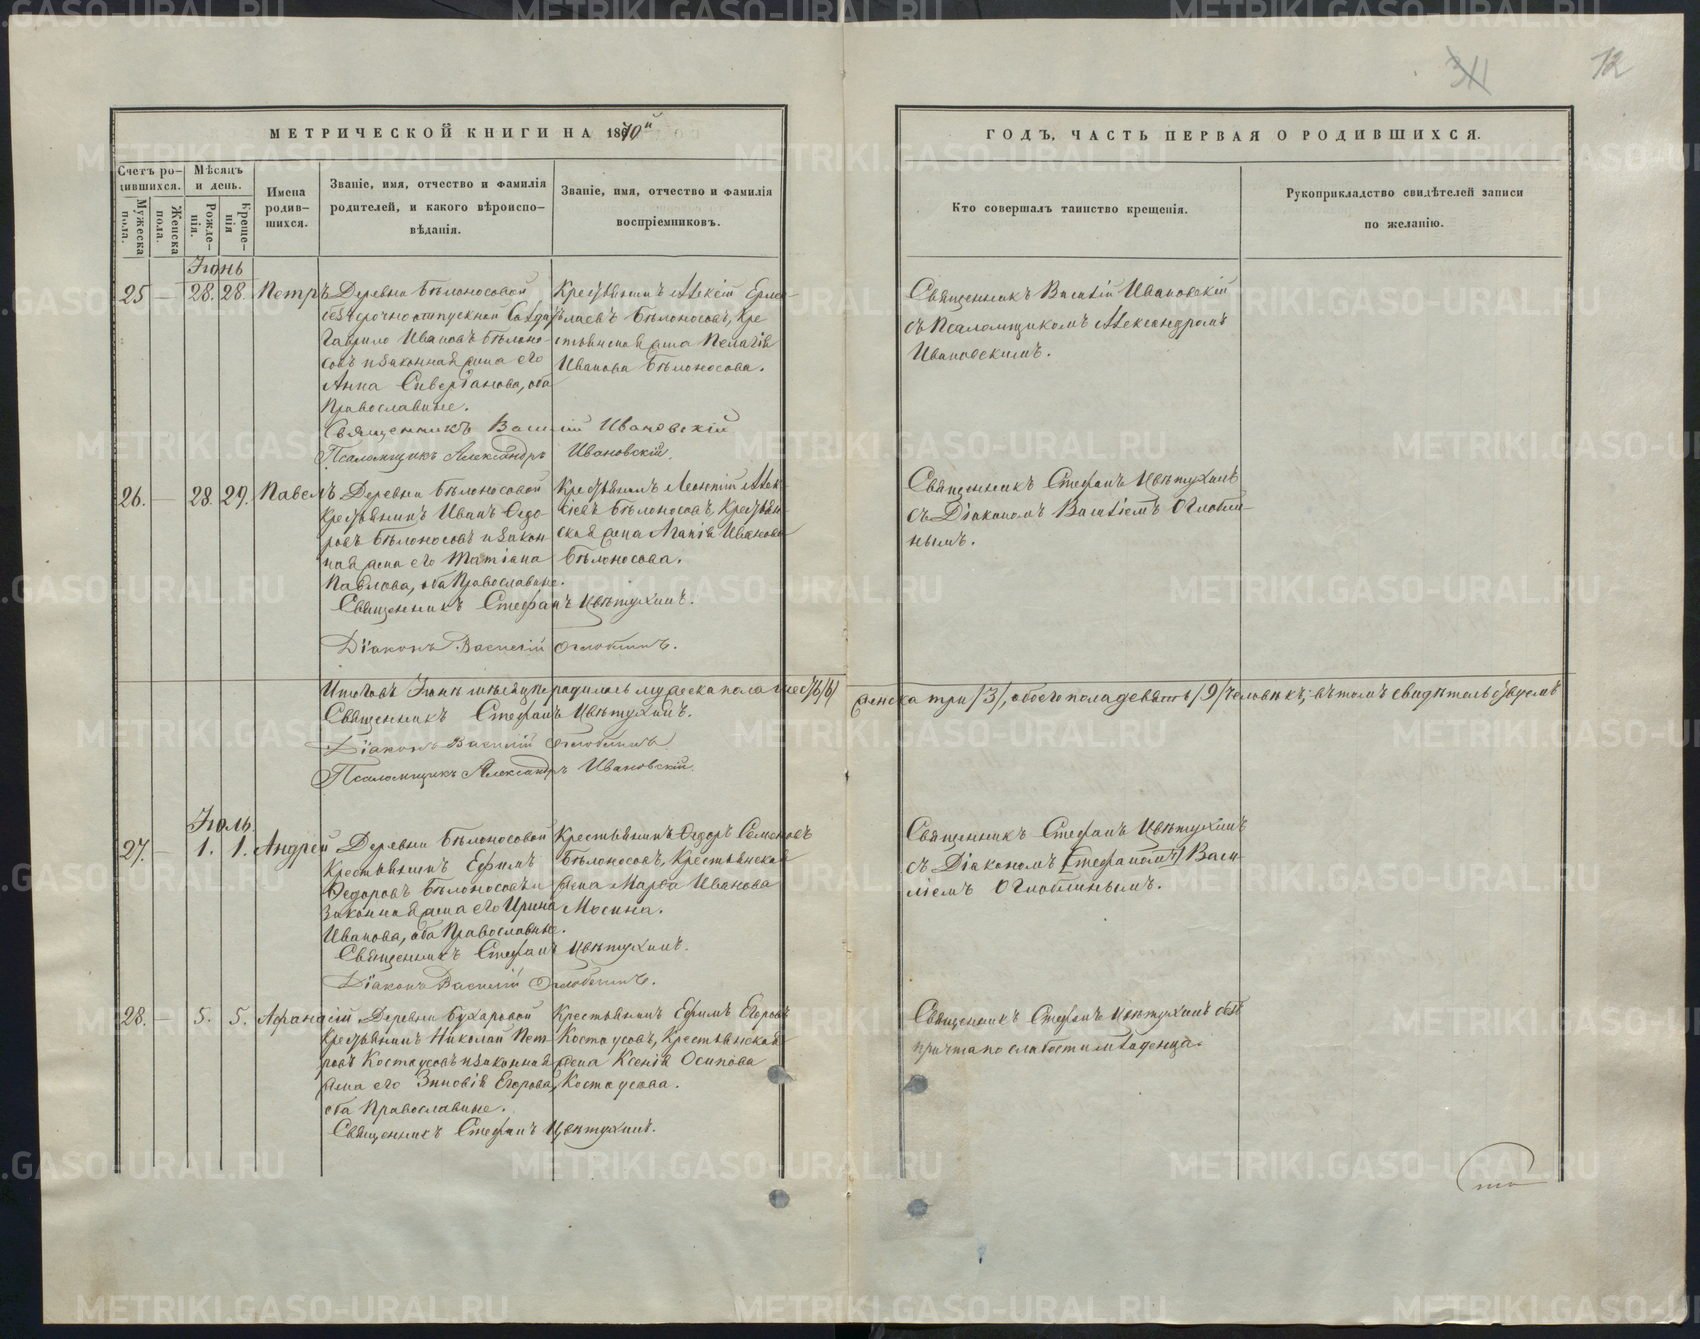 12
МЕТРИЧЕСКОЙ КНИГИ НА 1870й
ГОДЪ, ЧАСТЬ ПЕРВАЯ О РОДИВШИХСЯ.
Счетъ родившихся.
Мужеска пола.
Женска пола.
Мѣсяцъ и день.
Рожденія.
Крещенія
Имена родившихся.
Званіе, имя, отчество и фамилія
родителей, и какого вѣроисповѣданія.
Званіе, имя, отчество и фамилія
воспріемниковъ.
Кто совершалъ таинство крещенія.
Рукоприкладство свидѣтелей записи
по желанію.
Іюнь
25 — 28. 28. Петръ
Деревни Бѣлоносовой
безсрочноотпускной Солдатъ
Гаврило Ивановъ Бѣлоно-
совъ и законная жена его
Анна Сивертанова, оба
Православные.
Крестьянинъ Алексій Ермо-
лаевъ Бѣлоносовъ, Кре
стьянская жена Пелагія
Иванова Бѣлоносова.
Священникъ Василій Ивановскій
съ Псаломщикомъ Александромъ
Ивановскимъ.
Священникъ Василій Ивановскій
Псаломщикъ Александръ Ивановскій.
26. — 28. 29. Павелъ
Деревни Бѣлоносовой
Крестьянинъ Иванъ Ѳедо-
ровъ Бѣлоносовъ и закон
ная жена его Татіана
Павлова, оба Православные.
Крестьянинъ Леонтій Алек-
сіевъ Бѣлоносовъ, Крестьян
ская жена Агапія Иванова
Бѣлоносова.
Священникъ Стефанъ Цвѣтухинъ
съ Діакономъ Василіемъ Оглобли-
нымъ.
Священникъ Стефанъ Цвѣтухинъ.
Діаконъ Василій Оглоблинъ.
Итого въ Іюнѣ мѣсяцѣ родилось мужеска пола шесть /6/
женска три /3/, обоего пола девять /9/ человѣкъ; въ томъ свидѣтельствуемъ
Священникъ Стефанъ Цвѣтухинъ.
Діаконъ Василій Оглоблинъ
Псаломщикъ Александръ Ивановскій.
Іюль.
27. — 1. 1. Андрей
Деревни Бѣлоносовой
Крестьянинъ Ефимъ
Ѳедоровъ Бѣлоносовъ и
законная жена его Ирина
Иванова, оба Православные.
Крестьянинъ Ѳедоръ Семеновъ
Бѣлоносовъ, Крестьянская
жена Марѳа Иванова
Мосина.
Священникъ Стефанъ Цвѣтухинъ
съ Діакономъ [Стефаномъ] Васи-
ліемъ Оглоблинымъ.
Священникъ Стефанъ Цвѣтухинъ.
Діаконъ Василій Оглоблинъ.
28. — 5. 5. Афанасій
Деревни Бухаровой
Крестьянинъ Николай Пет-
ровъ Костоусовъ и законная
жена его Зиновія Егорова,
оба Православные.
Крестьянинъ Ефимъ Егоровъ
Костоусовъ, Крестьянская
жена Ксенія Осипова
Костоусова.
Священникъ Стефанъ Цвѣтухинъ безъ
причта по слабости младенца.
Священникъ Стефанъ Цвѣтухинъ.